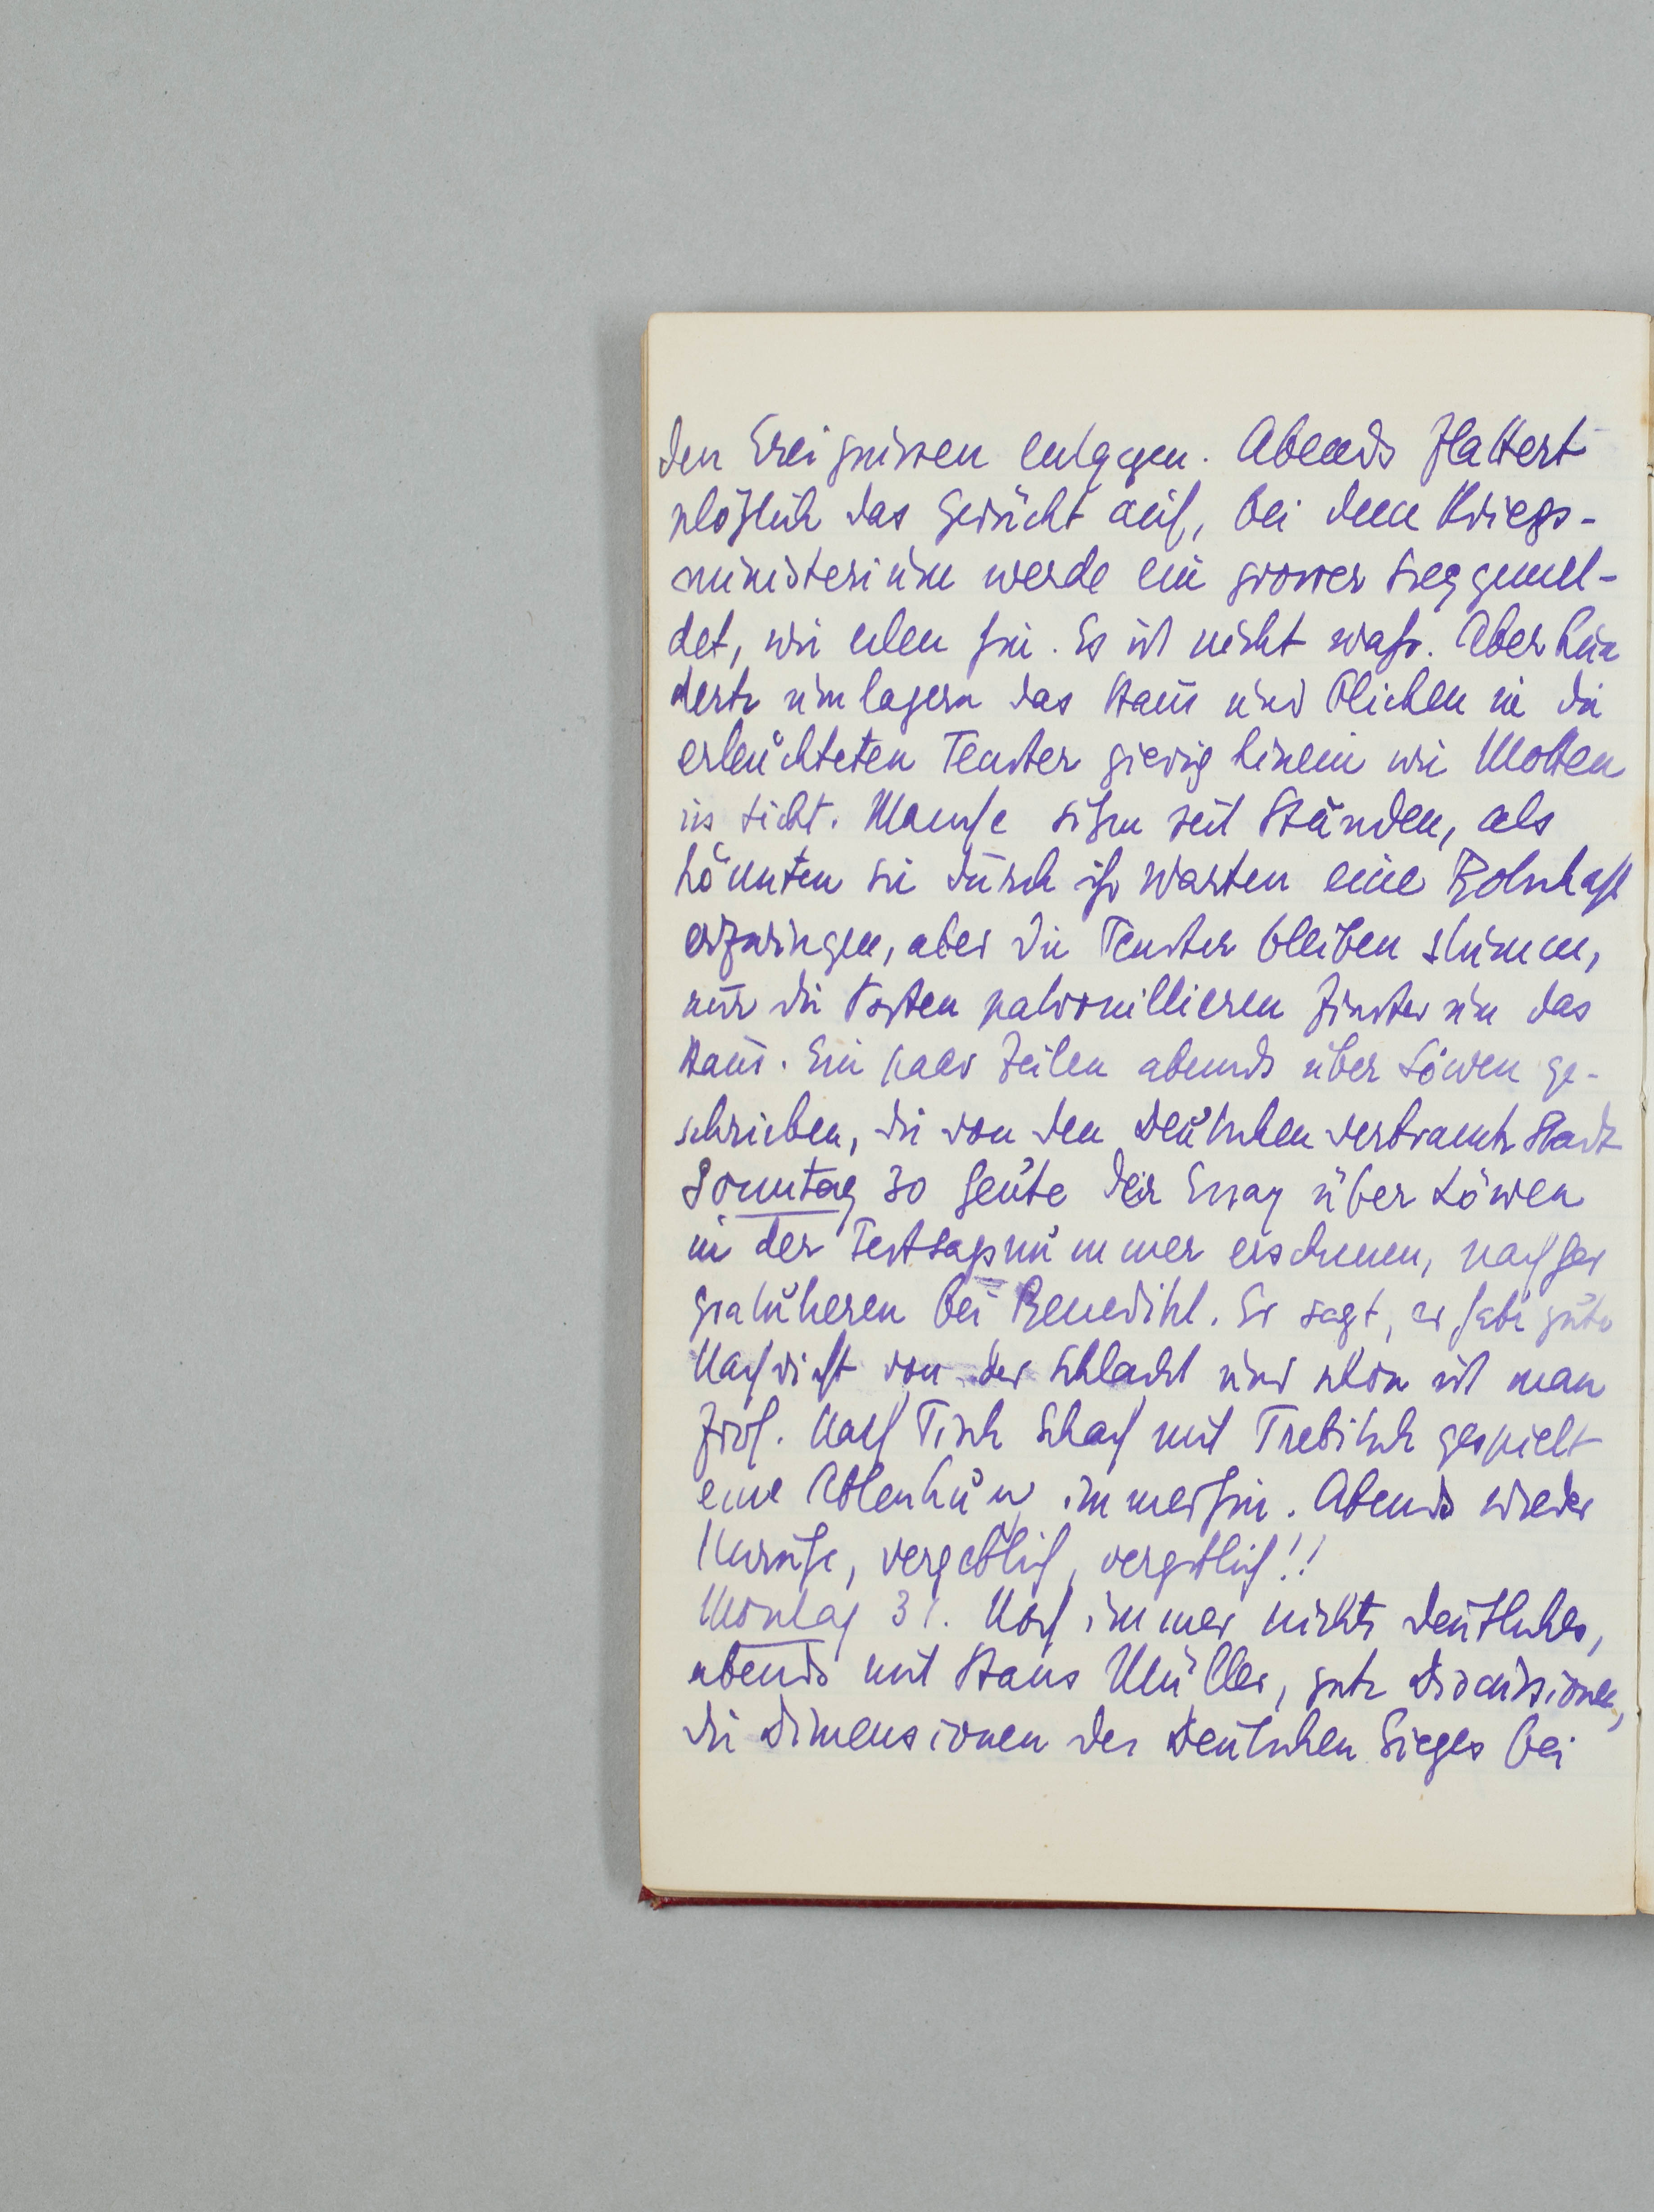 den Ereignissen entgegen. Abends flattert
plötzlich das Gerücht auf, bei dem Kriegs-
ministerium werde ein grosser Sieg gemel-
det, wir eilen hin. Es ist nicht wahr. Aber hun
derte umlagern das Haus und blicken in die
erleuchteten Fenster gierig hinein wie Motten
ins Licht. Manche sitzen seit Stunden, als
könnten sie durch ihr Warten eine Botschaft
erzwingen, aber die Fenster bleiben stumm,
nur die Posten patrouillieren finster um das
Haus. Ein paar Zeilen abends über Löwen ge-
schrieben, die von den Deutschen verbrannte Stadt
Sonntag 30 heute der Essay über Löwen
in der Festtagsnummer erschienen, nachher
gratulieren bei Benedikt. Er sagt, er habe gute
Nachricht von der Schlacht und schon ist man
froh. Nach Tisch Schach mit Trebitsch gespielt
eine Ablenkung immerhin. Abends wieder
Unruhe, vergeblich, vergeblich!!
Montag 31. Noch immer nichts deutliches,
abends mit Hans Müller, gute Discussionen,
die Dimensionen des Deutschen Sieges bei